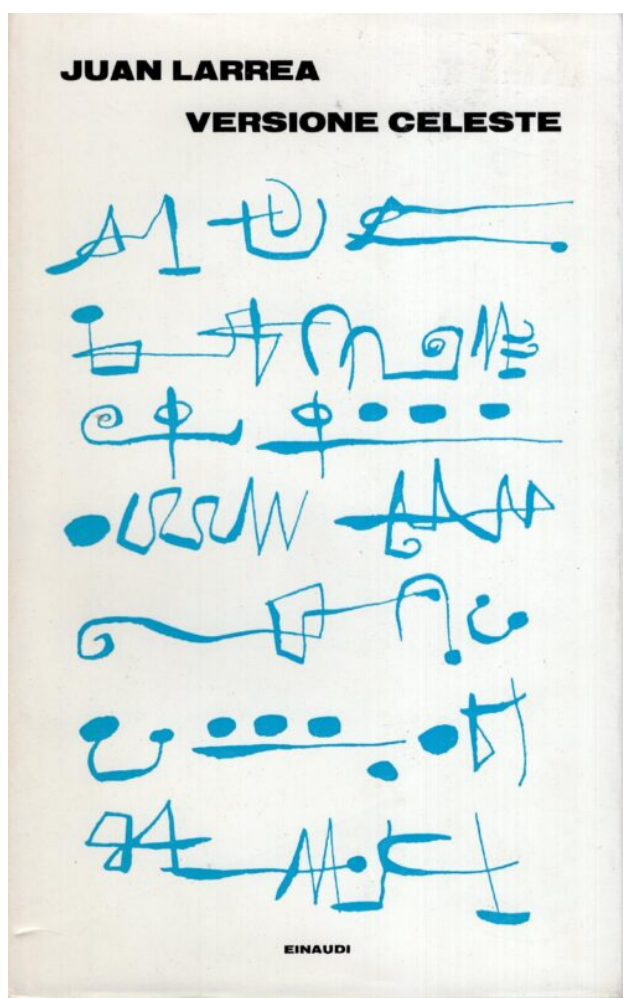 JUAN LARREA
VERSIONE CELESTE
EINAUDI